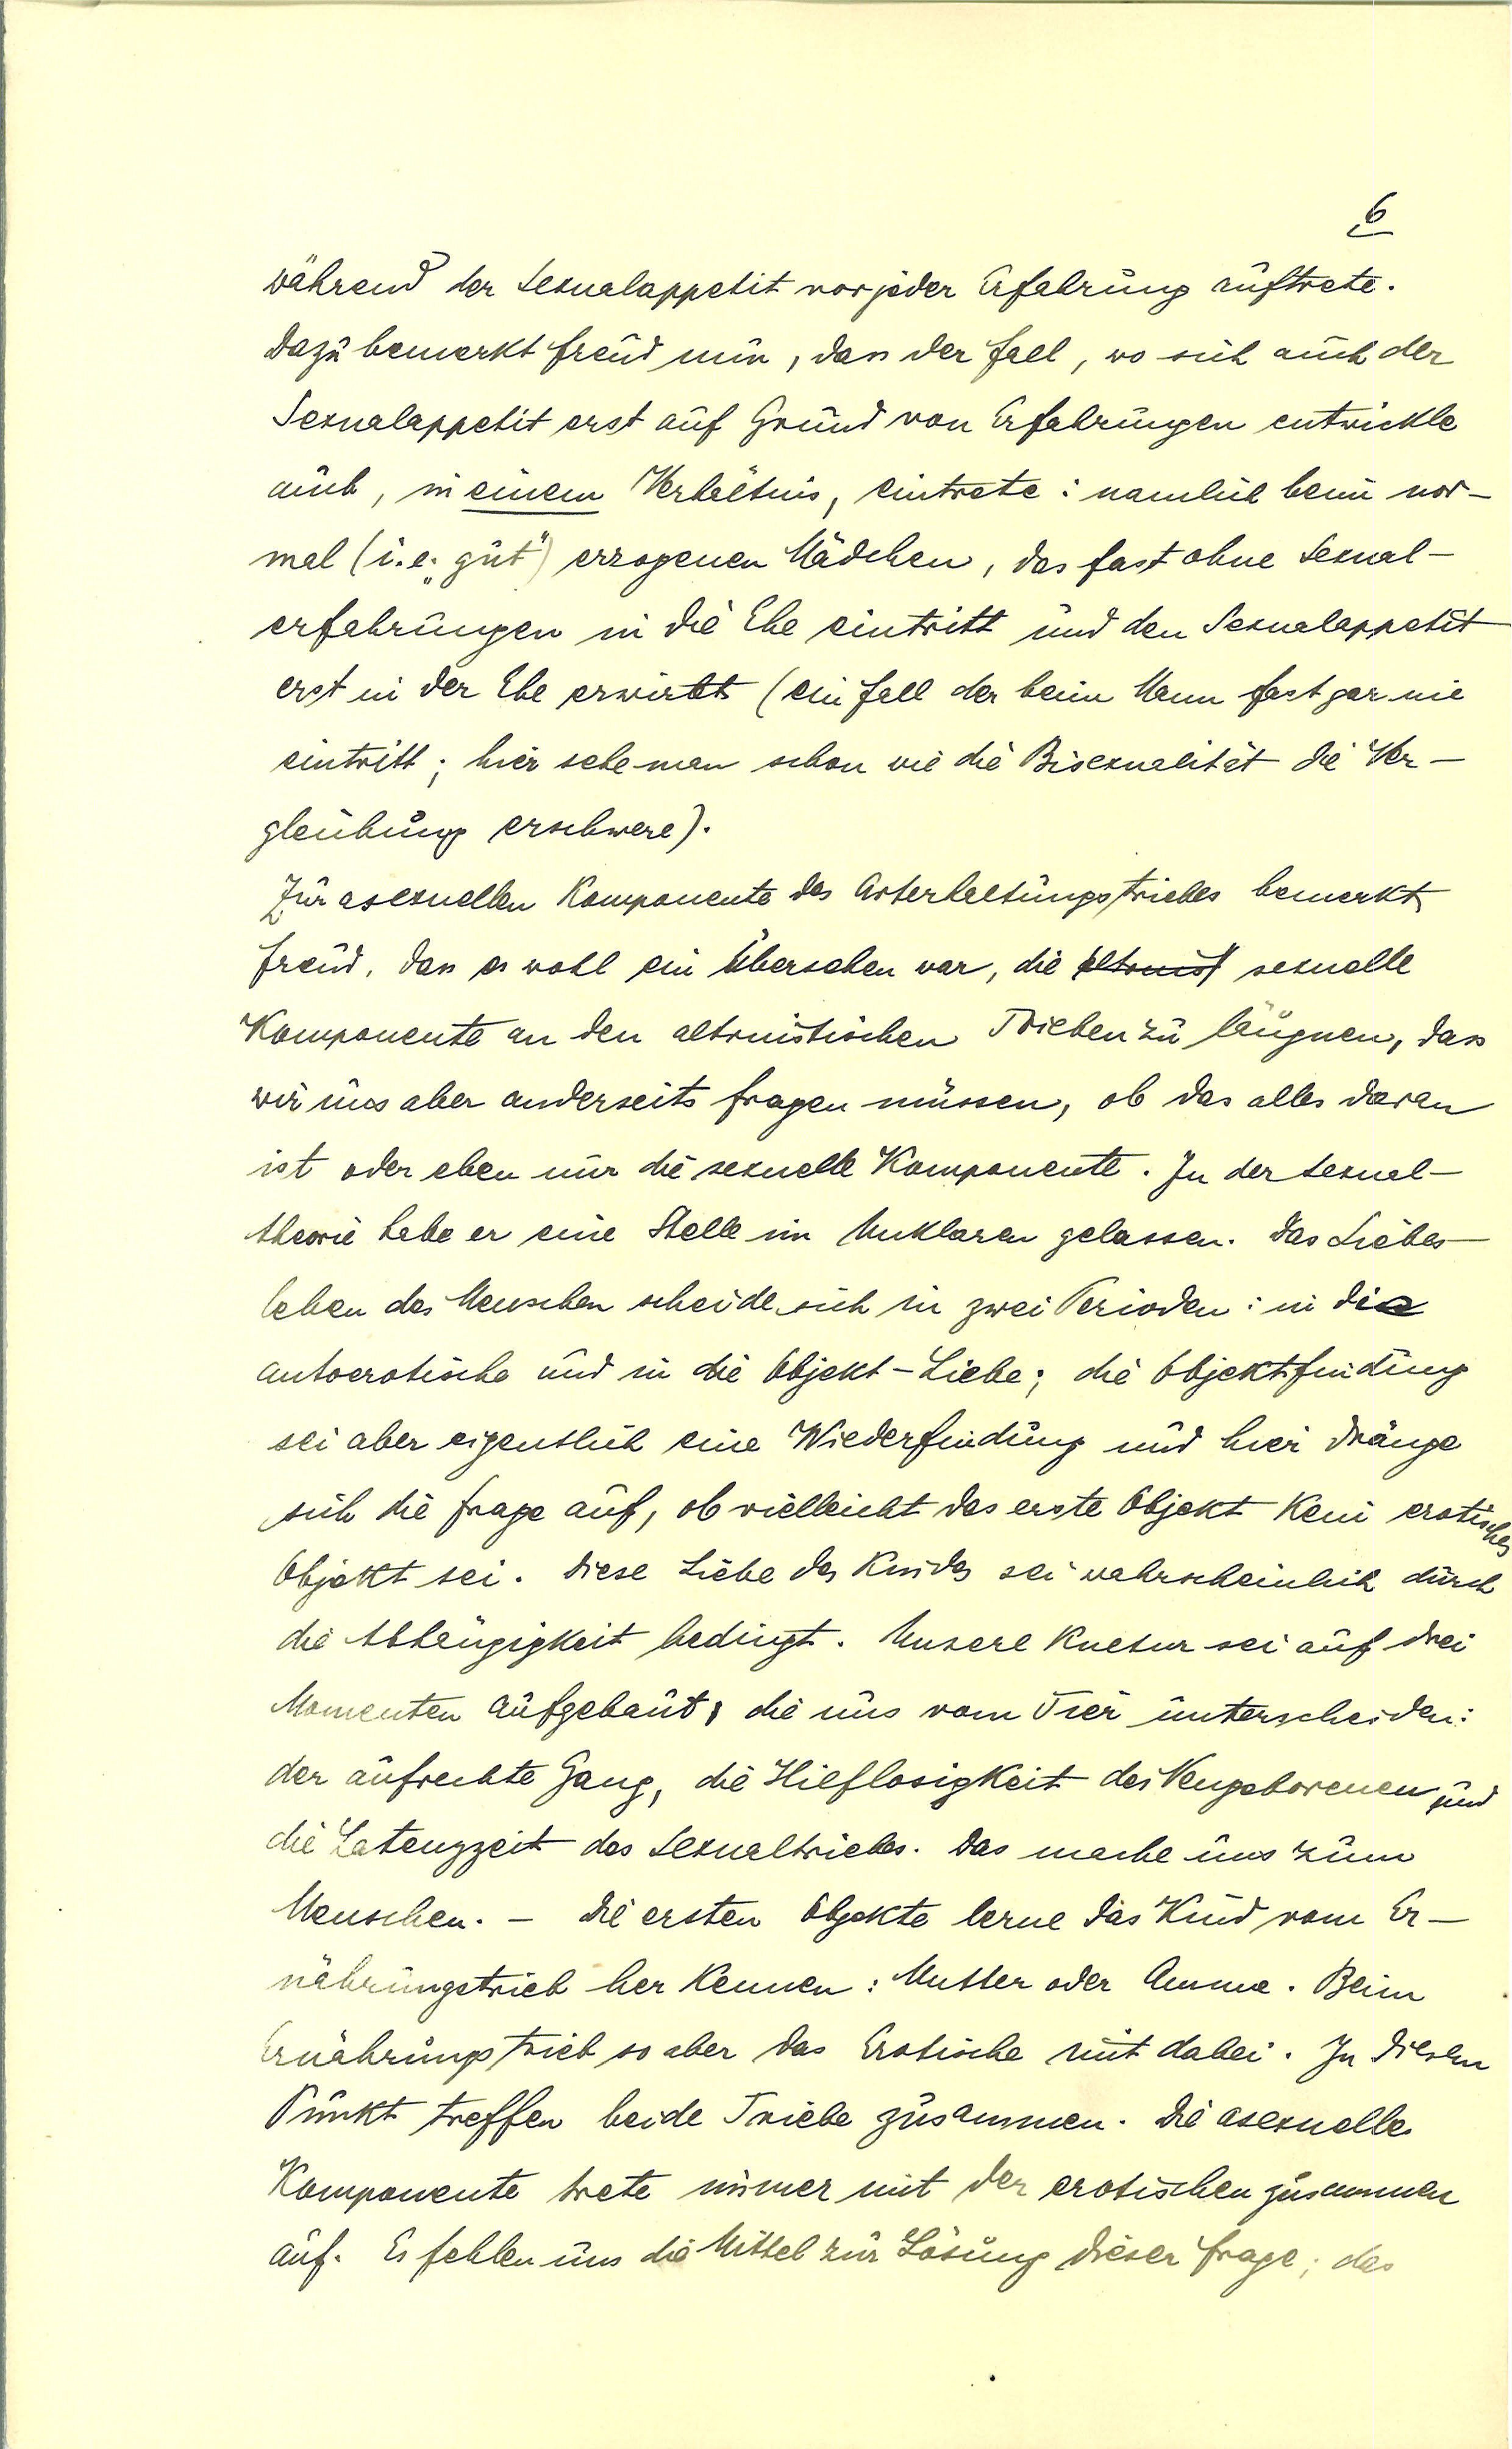 6
während der Sexualappetit vor jeder Erfahrung auftrete.
Dazu bemerkt Freud nun, dass der Fall, wo sich auch der
Sexualappetit erst auf Grund von Erfahrungen entwickle
auch, in einem Verhältnis, eintrete: nämlich beim nor-
mal (i.e. „gut") erzogenen Mädchen, das fast ohne Sexual-
erfahrungen in die Ehe eintritt und den Sexualappetit
erst in der Ehe erwirbt (ein Fall der beim Mann fast gar nie
eintritt; hier sehe man schon wie die Bisexualität die Ver-
gleichung erschwere).
Zur asexuellen Komponente des Arterhaltungstriebes bemerkt
Freud, dass es wohl ein Übersehen war, die altruist sexuelle
Komponente an den altruistischen Trieben zu läugnen, dass
wir uns aber anderseits fragen müssen, ob das alles daran
ist oder eben nur die sexuelle Komponente. In der Sexual-
theorie habe er eine Stelle im Unklaren gelassen. Das Liebes-
leben des Menschen scheide sich in zwei Perioden: in die
autoerotische und in die Objekt-Liebe; die Objektfindung
sei aber eigentlich eine Wiederfindung und hier dränge
sich die Frage auf, ob vielleicht das erste Objekt kein erotisches
Objekt sei. Diese Liebe des Kindes sei wahrscheinlich durch
die Abhängigkeit bedingt. Unsere Kultur sei auf drei
Momenten aufgebaut, die uns vom Tier unterscheiden:
der aufrechte Gang, die Hilflosigkeit des Neugeborenen und
die Latenzzeit des Sexualtriebes. Das mache uns zum
Menschen. – Die ersten Objekte lerne das Kind vom Er-
nährungstrieb her kennen: Mutter oder Amme. Beim
Ernährungstrieb so aber das Erotische mit dabei. In diesem
Punkt treffen beide Triebe zusammen. Die asexuelle
Komponente trete immer mit der erotischen zusammen
auf. Es fehlen uns die Mittel zur Lösung dieser Frage; das